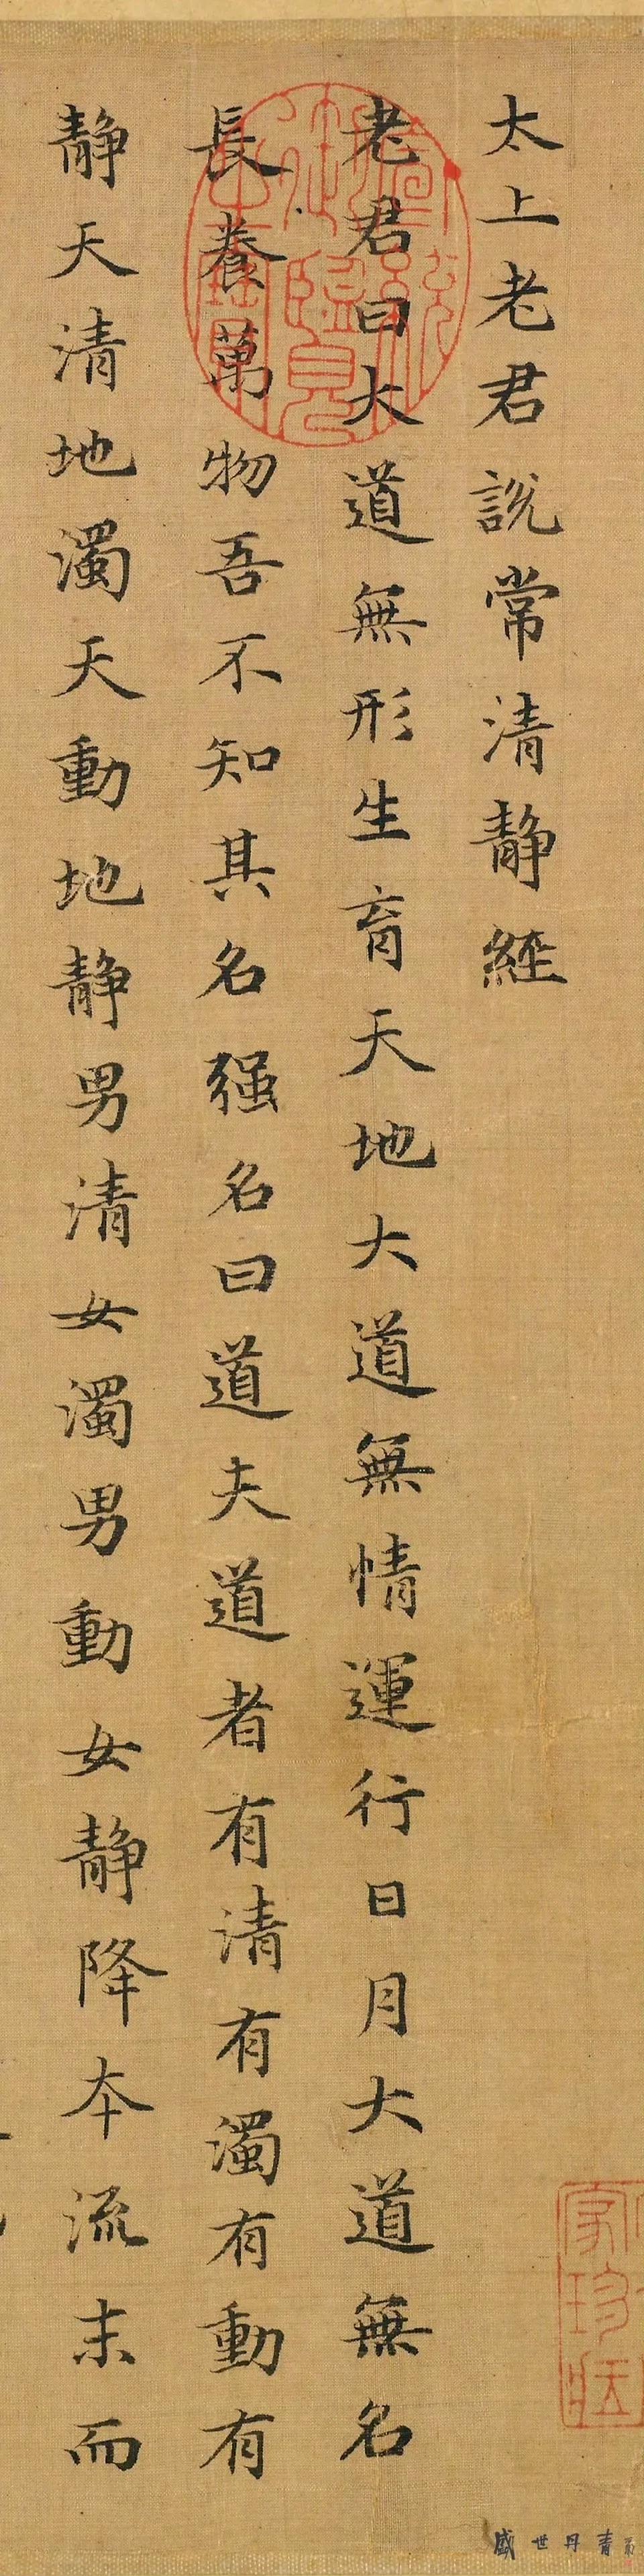 太上老君說常清静經
老君曰大道無形生育天地大道無情運行日月大道無名
長養萬物吾不知其名强名曰道夫道者有清有濁有動有
静天清地濁天動地静男清女濁男動女静降夲流末而
盛世丹青